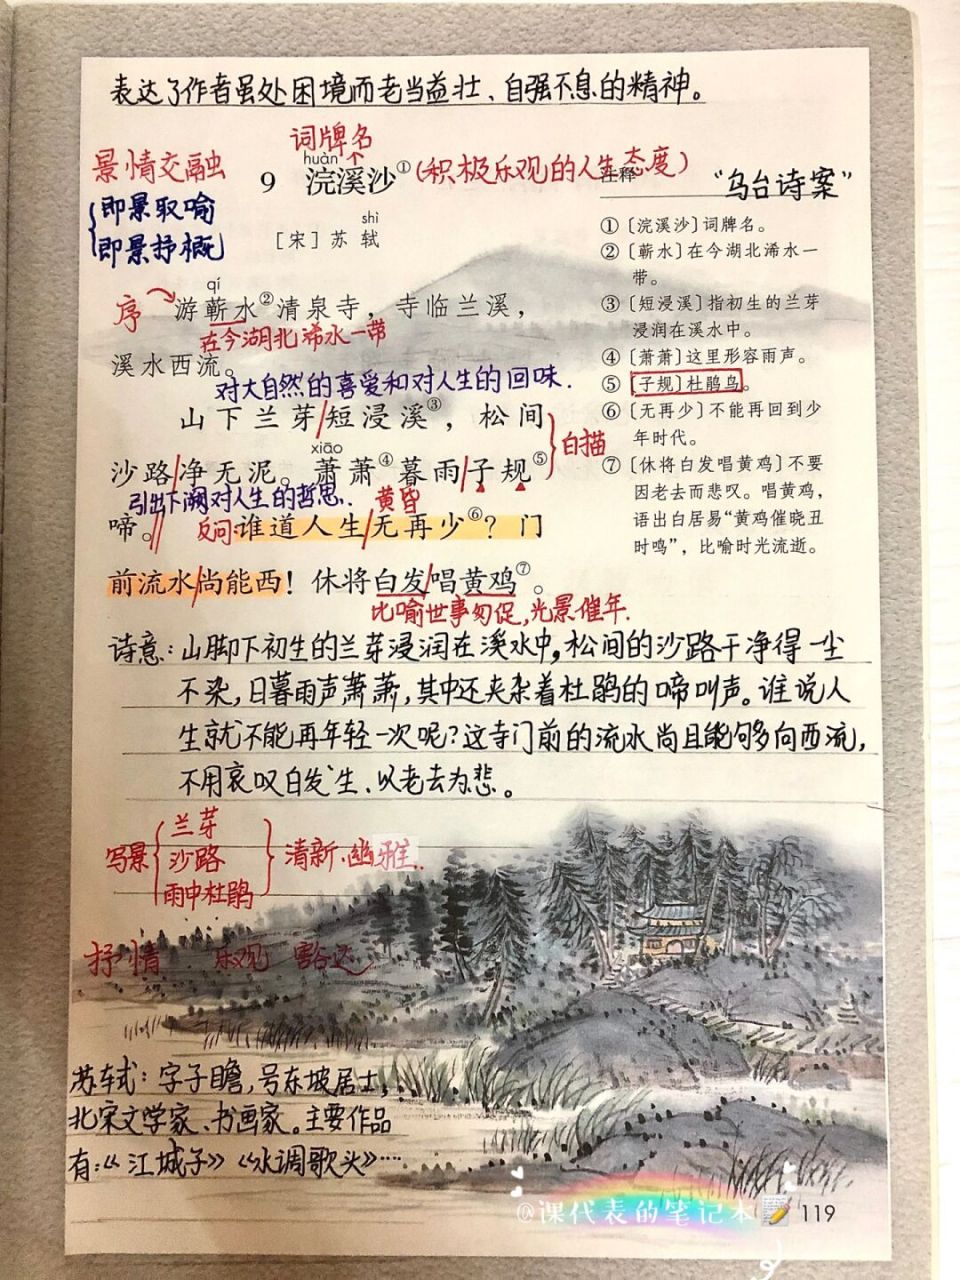 表达了作者虽处困境而老当益壮、自强不息的精神。
词牌名
huàn
景情交融
9 浣溪沙①(积极乐观的人生态度)
注释
"乌台诗案"
即景取喻
即景抒概
shì
[宋] 苏 轼
①〔浣溪沙〕词牌名。
②〔蕲水〕在今湖北浠水一
带。
③〔短浸溪〕指初生的兰芽
浸润在溪水中。
④〔萧萧〕这里形容雨声。
⑤〔子规〕杜鹃鸟。
⑥〔无再少〕不能再回到少
年时代。
⑦〔休将白发唱黄鸡〕不要
因老去而悲叹。唱黄鸡,
语出白居易"黄鸡催晓丑
时鸣",比喻时光流逝。
qí
序 游蕲水②清泉寺,寺临兰溪,
在今湖北浠水一带
溪水西流。
对大自然的喜爱和对人生的回味.
山下兰芽/短浸溪③,松间
xiāo
白描
沙路/净无泥。萧萧④暮雨/子规⑤
引出下阙对人生的哲思. 黄昏
啼。// 反问:谁道人生/无再少⑥?门
前流水/尚能西!休将白发/唱黄鸡⑦。
比喻世事匆促,光景催年.
诗意:山脚下初生的兰芽浸润在溪水中,松间的沙路干净得一尘
不染,日暮雨声萧萧,其中还夹杂着杜鹃的啼叫声。谁说人
生就不能再年轻一次呢?这寺门前的流水尚且能够向西流,
不用哀叹白发生、以老去为悲。
兰芽
写景 沙路 清新.幽雅..
雨中杜鹃
抒情 乐观 豁达
苏轼:字子瞻,号东坡居士,
北宋文学家、书画家。主要作品
有:《江城子》《水调歌头》…
@课代表的笔记本
119